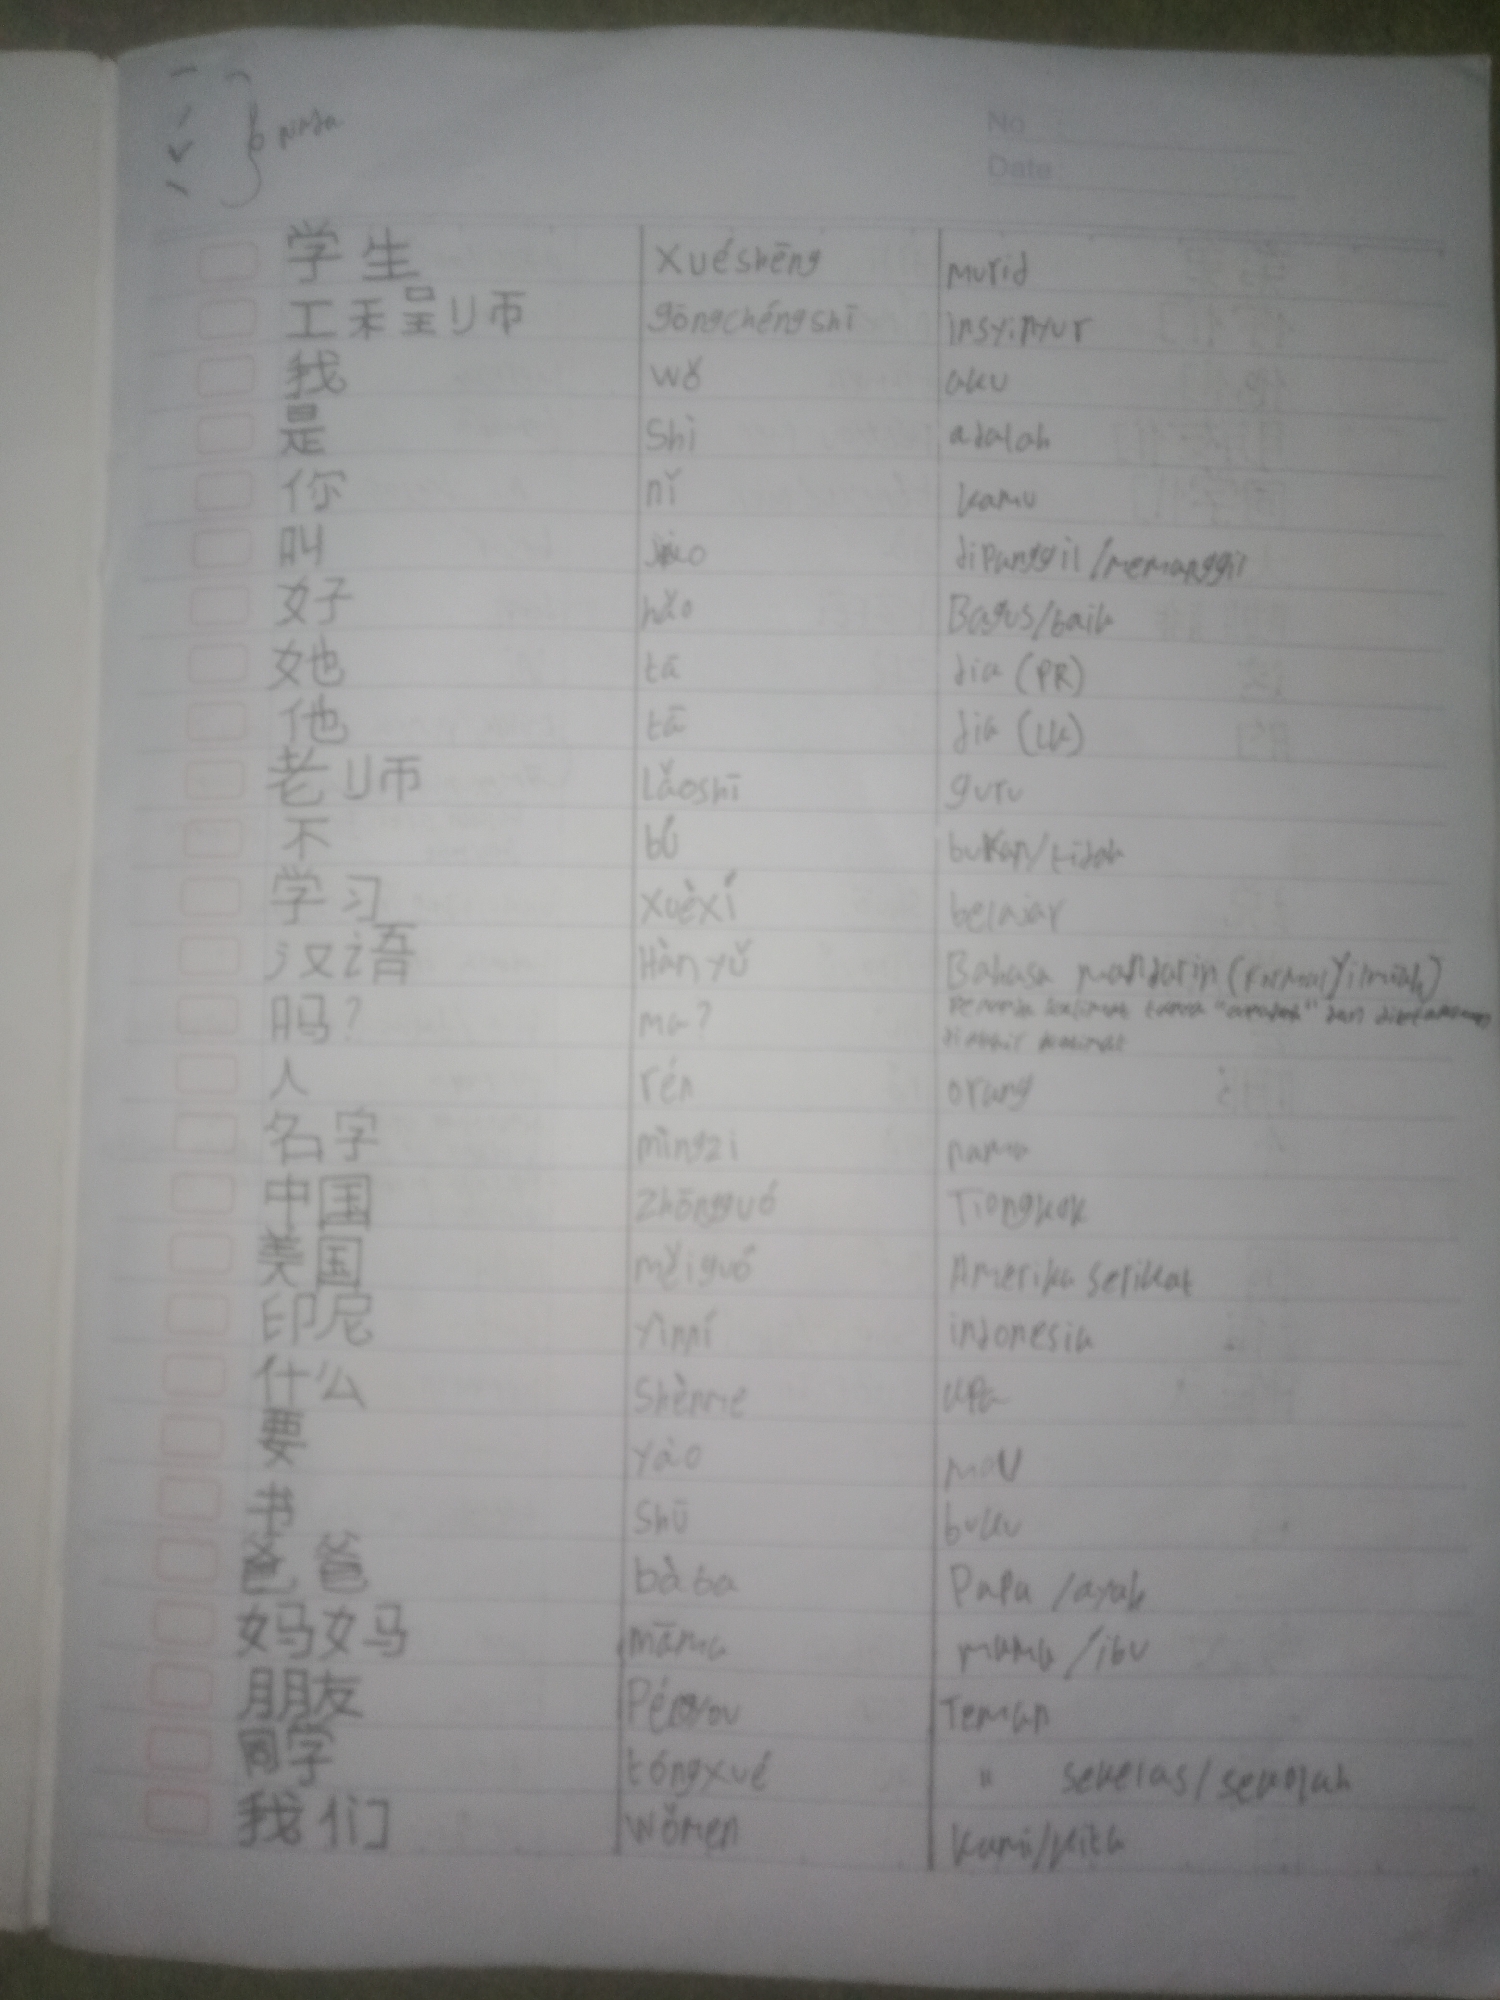 No
Date
6 nada
学生 xuéshēng murid
工程师 gōngchéngshī insyinyur
我 wǒ aku
是 shì adalah
你 nǐ kamu
叫 dipanggil/memanggil
好 hǎo Bagus/baik
她 tā dia (PR)
他 tā dia (LK)
老师 Lǎoshī guru
不 bukan/tidak
学习 xuèxí belajar
汉语 Hànyǔ Bahasa mandarin (Formal/ilmiah)
吗? ma? Penanda kalimat tanya "apakah" dan
diakhir kalimat
人 rén orang
名字 mīngzi nama
中国 Zhōngguó Tiongkok
美国 měiguó Amerika serikat
印尼 yìnní indonesia
什么 Shènme apa
要 yào mau
书 Shū buku
爸爸 bàba Papa /ayah
妈妈 māma mama /ibu
朋友 Teman
同学 tóngxué " sekelas/sekolah
我们 wǒmen kami/kita